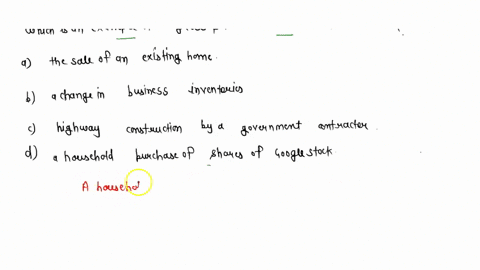 which is an example
a) the sale of an existing home.
b) a change in business inventories
c) highway construction by a government contracter.
d) a household purchase of shares of Google stock
A househo